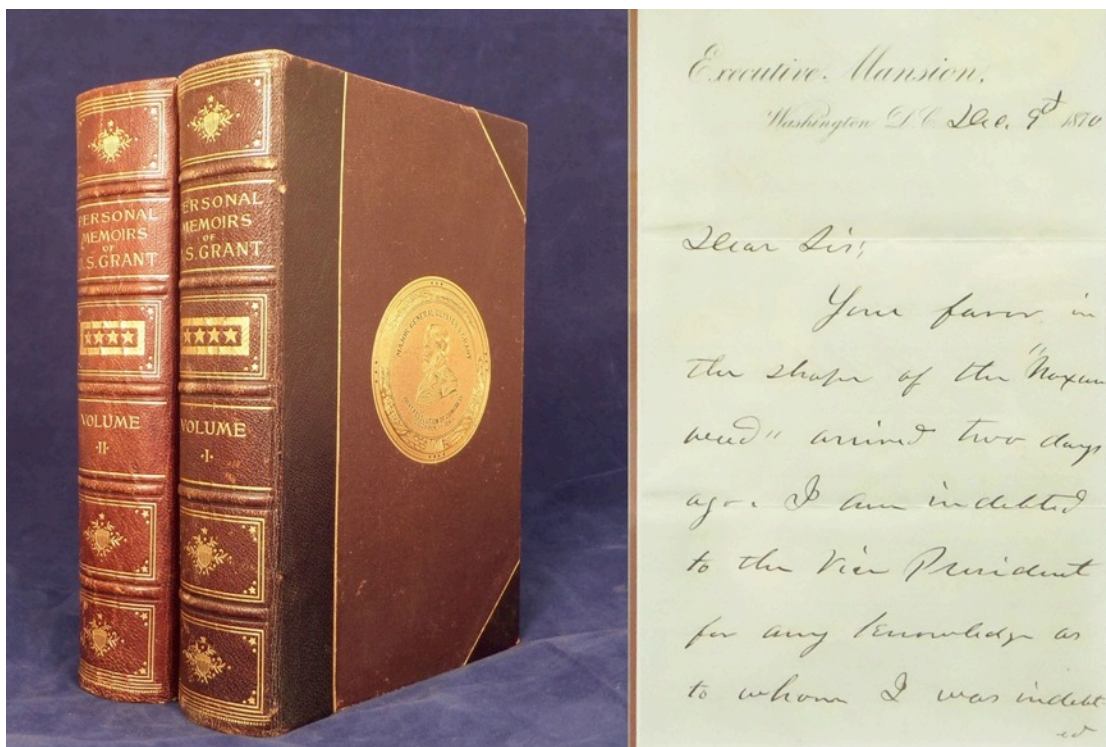 PERSONAL
MEMOIRS
OF
U.S. GRANT
VOLUME
·II·
PERSONAL
MEMOIRS
OF
U.S. GRANT
VOLUME
·I·
MAJOR GENERAL ULYSSES S. GRANT
Executive Mansion,
Washington D.C. Dec. 9th 1870
Dear Sir;
Your favor in
the shape of the "Noxious
weed" arrived two days
ago. I am indebted
to the Vice President
for any knowledge as
to whom I was indebt-
ed